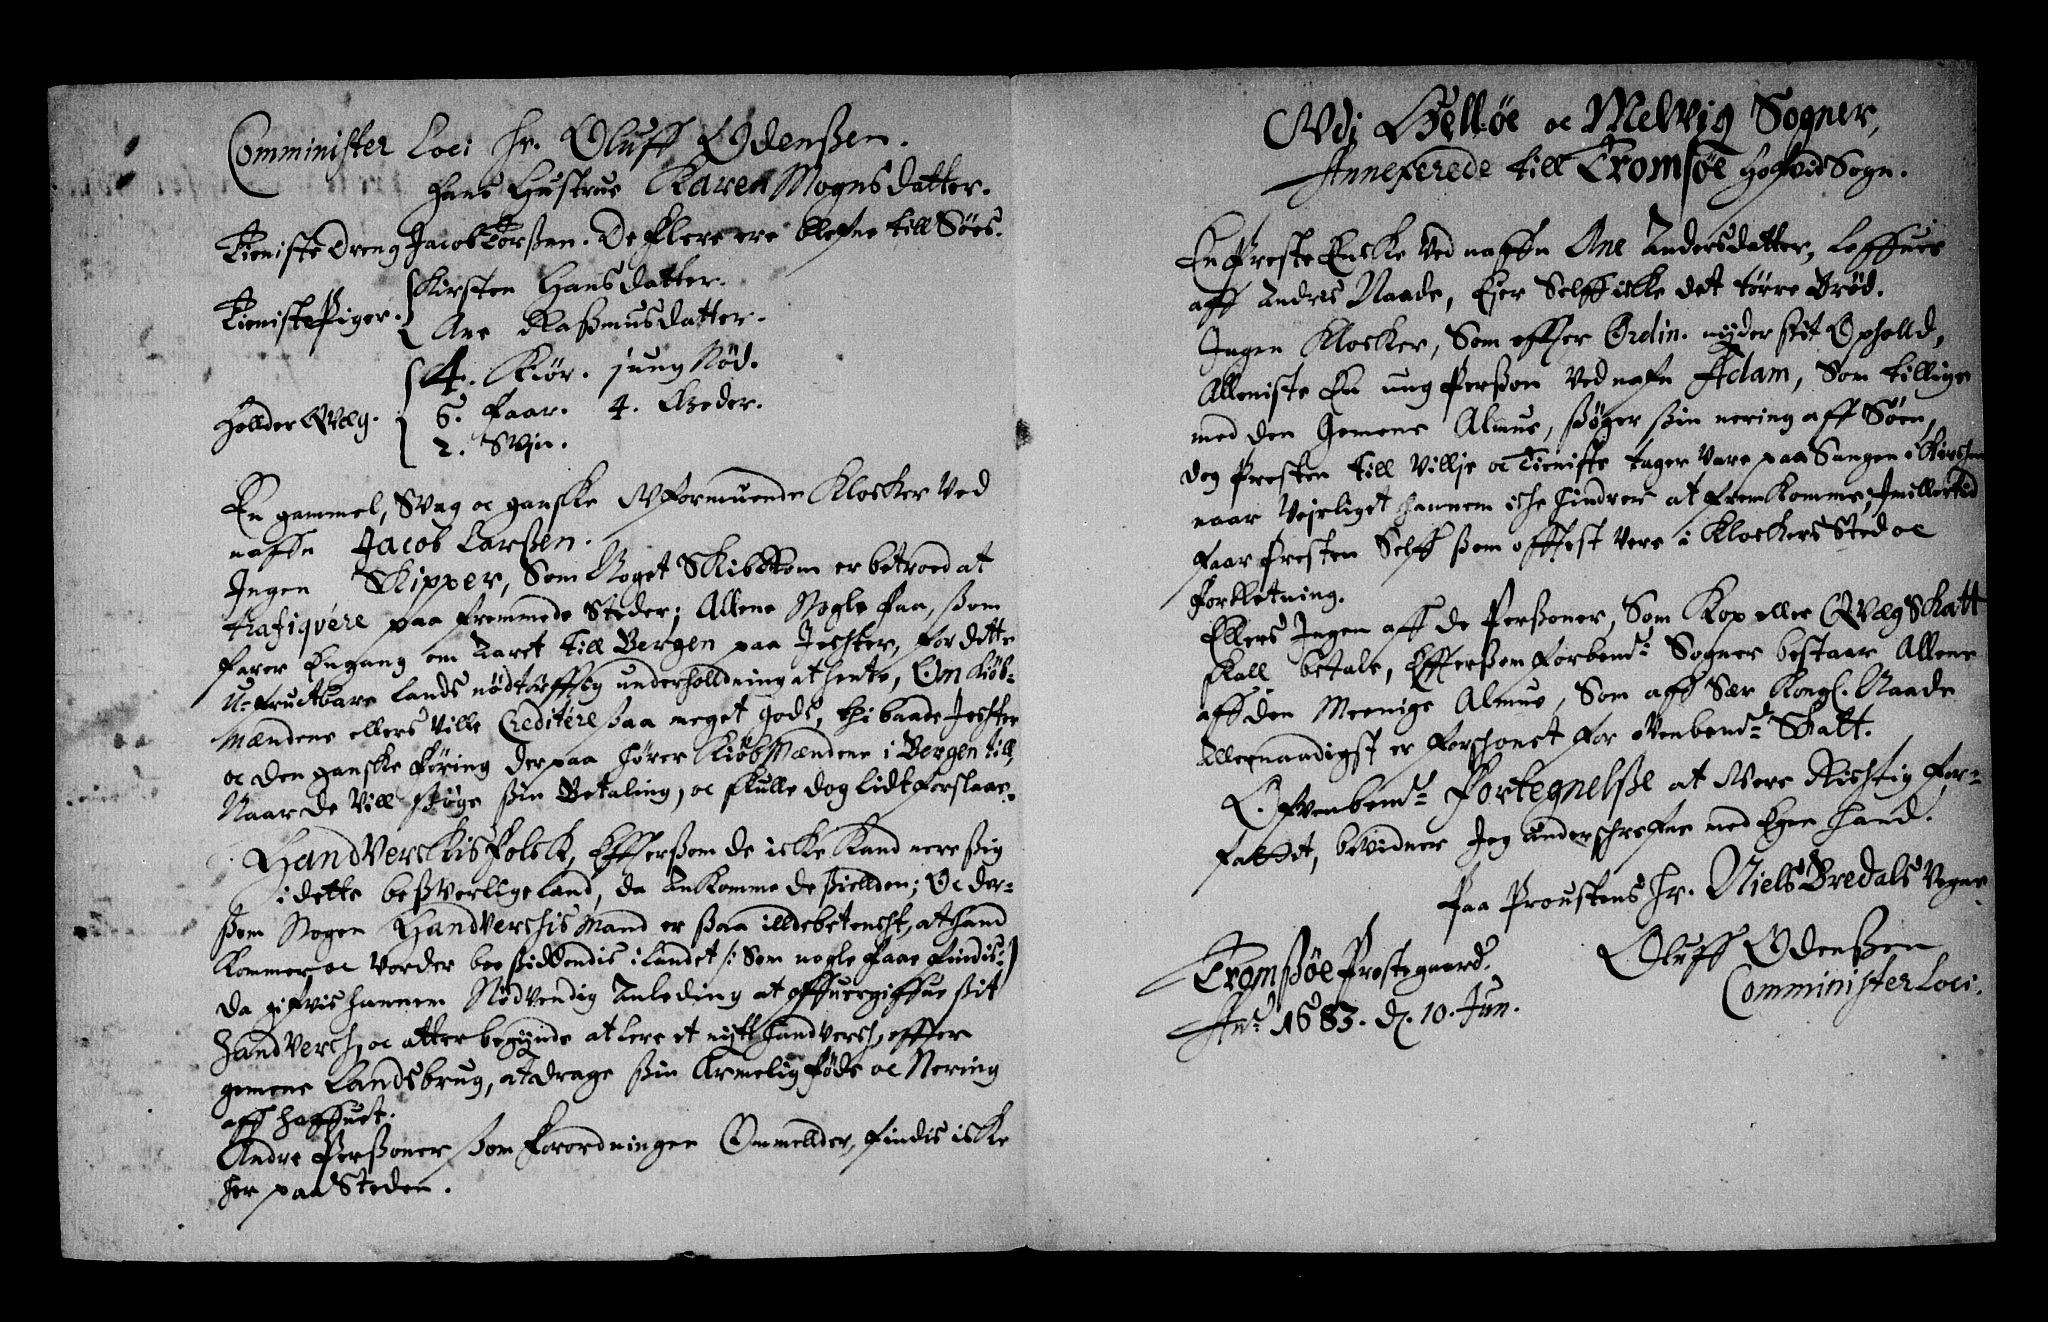 Comminister Loci Hr. Oluff Odenßen.
Hans Hustrue Karen Mogensdatter.
Tieniste dreng Jacob Torßen. De flere ere blefne till Søes.
Tieniste Piger. Kirsten Hansdatter.
Ane Raßmusdatter.
4. Kiør. jung Nød.
Hollder Qvæg. 6. Faar. 4. Geder.
2. Svin.
En gammel, Svag oc ganske Uformuende Klocker Ved
naffn Jacob Larßen.
Ingen Skipper, Som Noget Skibbrom er betroed at
trafiqvére paa fremmede Steder; Allene Nogle Faa, ßom
farer Engang om Aaret till Bergen paa Jechter, for dette
U-fructbare Lands nødtørfftig underholldning at hente, Om Kiøb-
Mændene ellers Ville Creditére ßaa meget gods, thi baade Jechter
oc den ganske Føring derpaa hører Kiøbmændene i Bergen till,
Naar de Vill ßøge ßin Betaling, oc skulle dog lidt forslaae.
Handverckisfolck, Efftersom de icke Kand nere ßig
i dette beßverlige land, da Ankomme de ßiellden; Oc der-
ßom Nogen Handverchis mand er ßaa illde betencht, at hand
Kommer oc Vorder boeßiddendis i Landet /: Som nogle Faae findis :/
da gifvis hannem Nødvendig Anleding at offvergiffue ßit
Handverch, oc atter begynde at lere et nytt handverch, effter
gemene Landsbrug, at drage ßin Armelig føde oc Nering
aff haffuet.
Andre Perßoner ßom Forordningen Ommellder, findis icke
her paa Steden.
Udi Helløe oc Melvig Sogner,
Annexerede till Tromsøe Hofvid Sogn.
En Preste Encke Ved naffn Ane Andersdatter, Leffuer
aff Andris Naade, Ejer Selff icke det tørre Brød.
Ingen Klocker, Som effter Ordin. nyder sit Ophold,
Alleniste En ung Perßon Ved nafn Adam, Som tillige
med den Gemene Almue, ßøger ßin nering aff Søen,
dog Presten till Villje oc Tieniste tager Vare paa Sangen i Kirchen
naar Vejrliget hannem iche hindrer at fremkomme; Imillertid
Faar Presten Selff ßom offtist Vere i Klockers Sted oc
Forretning.
Ellers Ingen aff de Perßoner, Som Kop eller Qvæg Skatt
skall betale, Effterßom forbemd: Sogner bestaar Allene
aff den Meenige Almue, Som aff Sær Kongl. Naade
Allernaadigst er forschonet for ovenbemd: Skatt.
Ofvenbemd: Fortegnelße at Vere Richtig for-
fattet, bevidner Jeg underschrefne med Egen Hand.
Paa Proustens Hr. Niels Bredals Vegne.
Tromßøe Prestegaard. Oluff Odenßen
Ano 1683. d. 10. Jun. Comminister Loci.